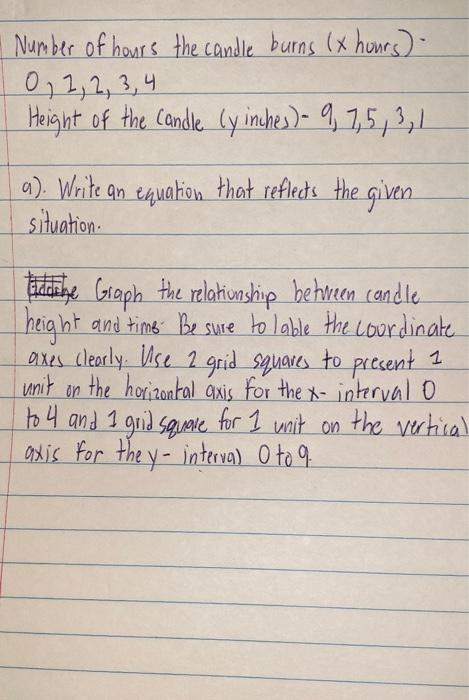 Number of hours the candle burns (x hours)-
0, 1, 2, 3, 4
Height of the candle (y inches)- 9, 7, 5, 3, 1
a). Write an equation that reflects the given
situation.
Graph the relationship between candle
height and time. Be sure to lable the coordinate
axes clearly. Use 2 grid squares to present 1
unit on the horizontal axis for the x- interval 0
to 4 and 1 grid square for 1 unit on the vertical
axis for the y- interval 0 to 9.